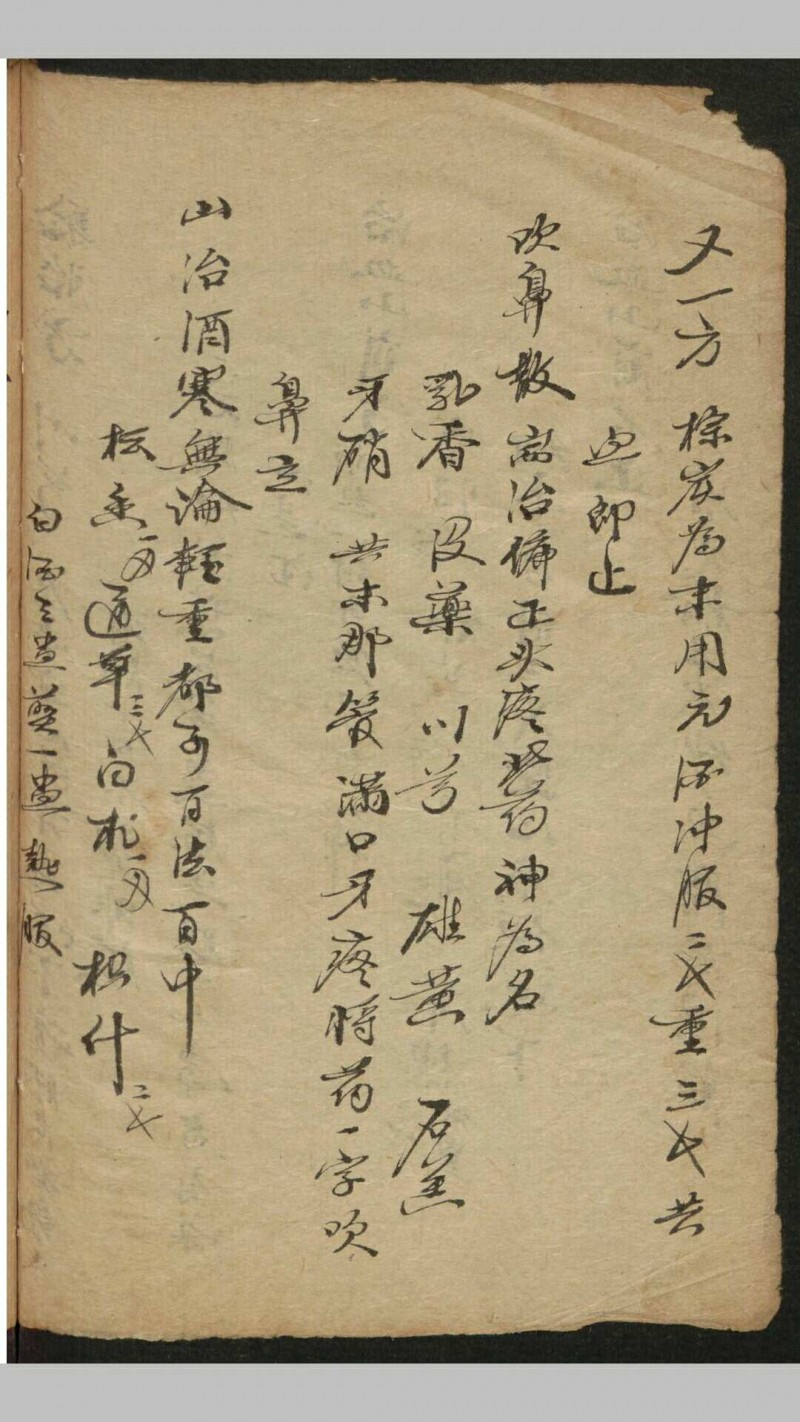 又一方 棕炭為末用元酒沖服二戈重三戈共
即止
吹鼻散 耑治偏正头疼此药神為名
乳香 没藥 川芎 雄黄 石羔
牙硝 共末那管满口牙疼将药一字吹
鼻立
山治酒寒無論輕重都可百法百中
松香一両 通草三戈 白朮一両 枳什二戈
白酒三盅煎一盅熱服